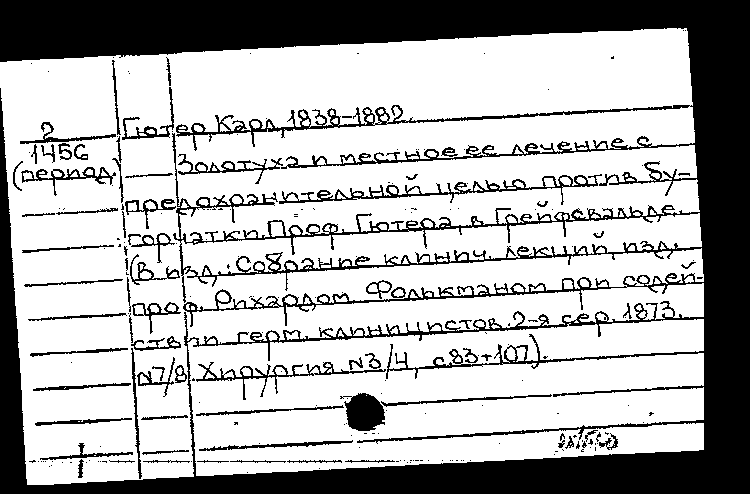 2
1456
(период.)
Гютер, Карл, 1838-1882.
Золотуха и местное ее лечение с
предохранительной целью против бу-
горчатки. Проф. Гютера, в Грейфсвальде.
(В изд.: Собрание клинич. лекций, изд.
проф. Рихардом Фолькманом при содей-
ствии герм. клиницистов. 2-я сер. 1873.
№7/8. Хирургия №3/4, с.83+107).